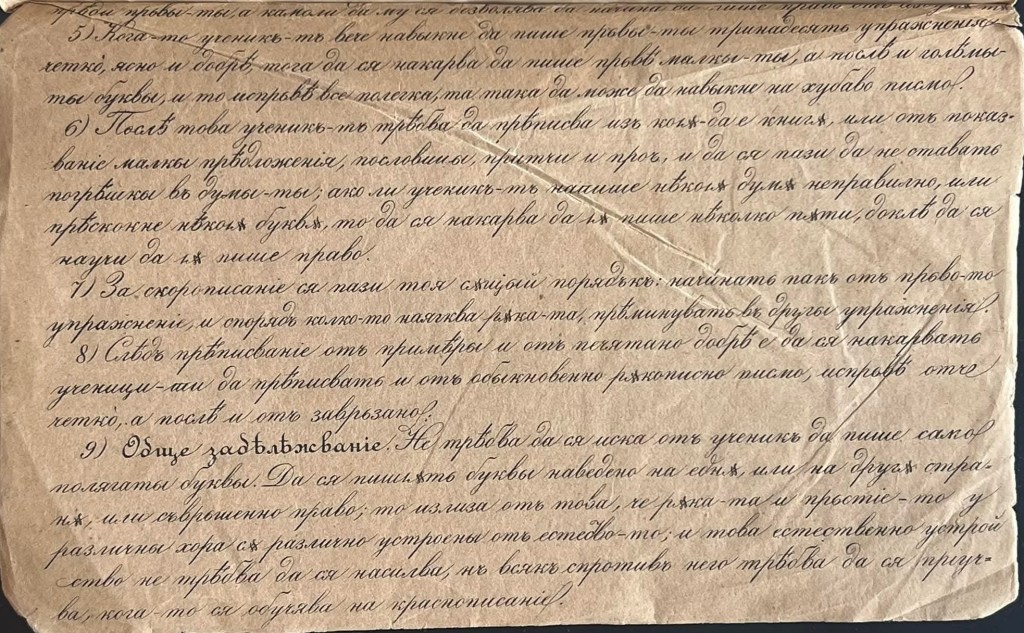 5) Кога-то ученикъ-тъ вече навыкне да пише първы-ты тринадесять упражненія
четкò, ясно и добрѣ, тога да ся накарва да пише първѣ малкы-ты, а послѣ и голѣмы-
ты буквы, и то испървѣ все полегка, та така да може да навыкне на хубаво писмо.
6) Послѣ това ученикъ-тъ трѣбва да прѣписва изъ коѭ-да е книгѫ, или отъ показ-
ваніе малкы прѣдложенія, пословицы, притчи и проч. и да ся пази да не ставать
погрѣшкы въ думы-ты; ако ли ученикъ-тъ напише нѣкоѭ думѫ неправилно, или
прѣскокне нѣкоѭ буквѫ, то да ся накарва да ѭ пише нѣколко пѫти, доклѣ да ся
научи да ѭ пише право.
7) За скорописаніе ся пази тоя сѫщый порядъкъ: начинать пакъ отъ прьво-то
упражненіе, и спорядъ колко-то наягква рѫка-та, прѣминувать въ другы упражненія.
8) Слѣдъ прѣписваніе отъ примѣры и отъ печятано добрѣ е да ся накарвать
ученици-ти да прѣписвать и отъ обыкновенно рѫкописно писмо, испрьвѣ отче
четкò, а послѣ и отъ завръзано.
9) Обще забѣлѣжваніе. Не трѣбва да ся иска отъ ученик да пише само
полягаты буквы. Да ся пишѫть буквы наведено на еднѫ, или на другѫ стра-
нѫ, или съвръшенно право; то излиза отъ това, че рѫка-та и пръстіе-то у
различны хора сѫ различно устроены отъ естество-то; и това естественно устрой
ство не трѣбва да ся насилва, нъ всякъ спротивъ него трѣбва да ся пріуч-
ва, кога-то ся обучява на краснописаніе.